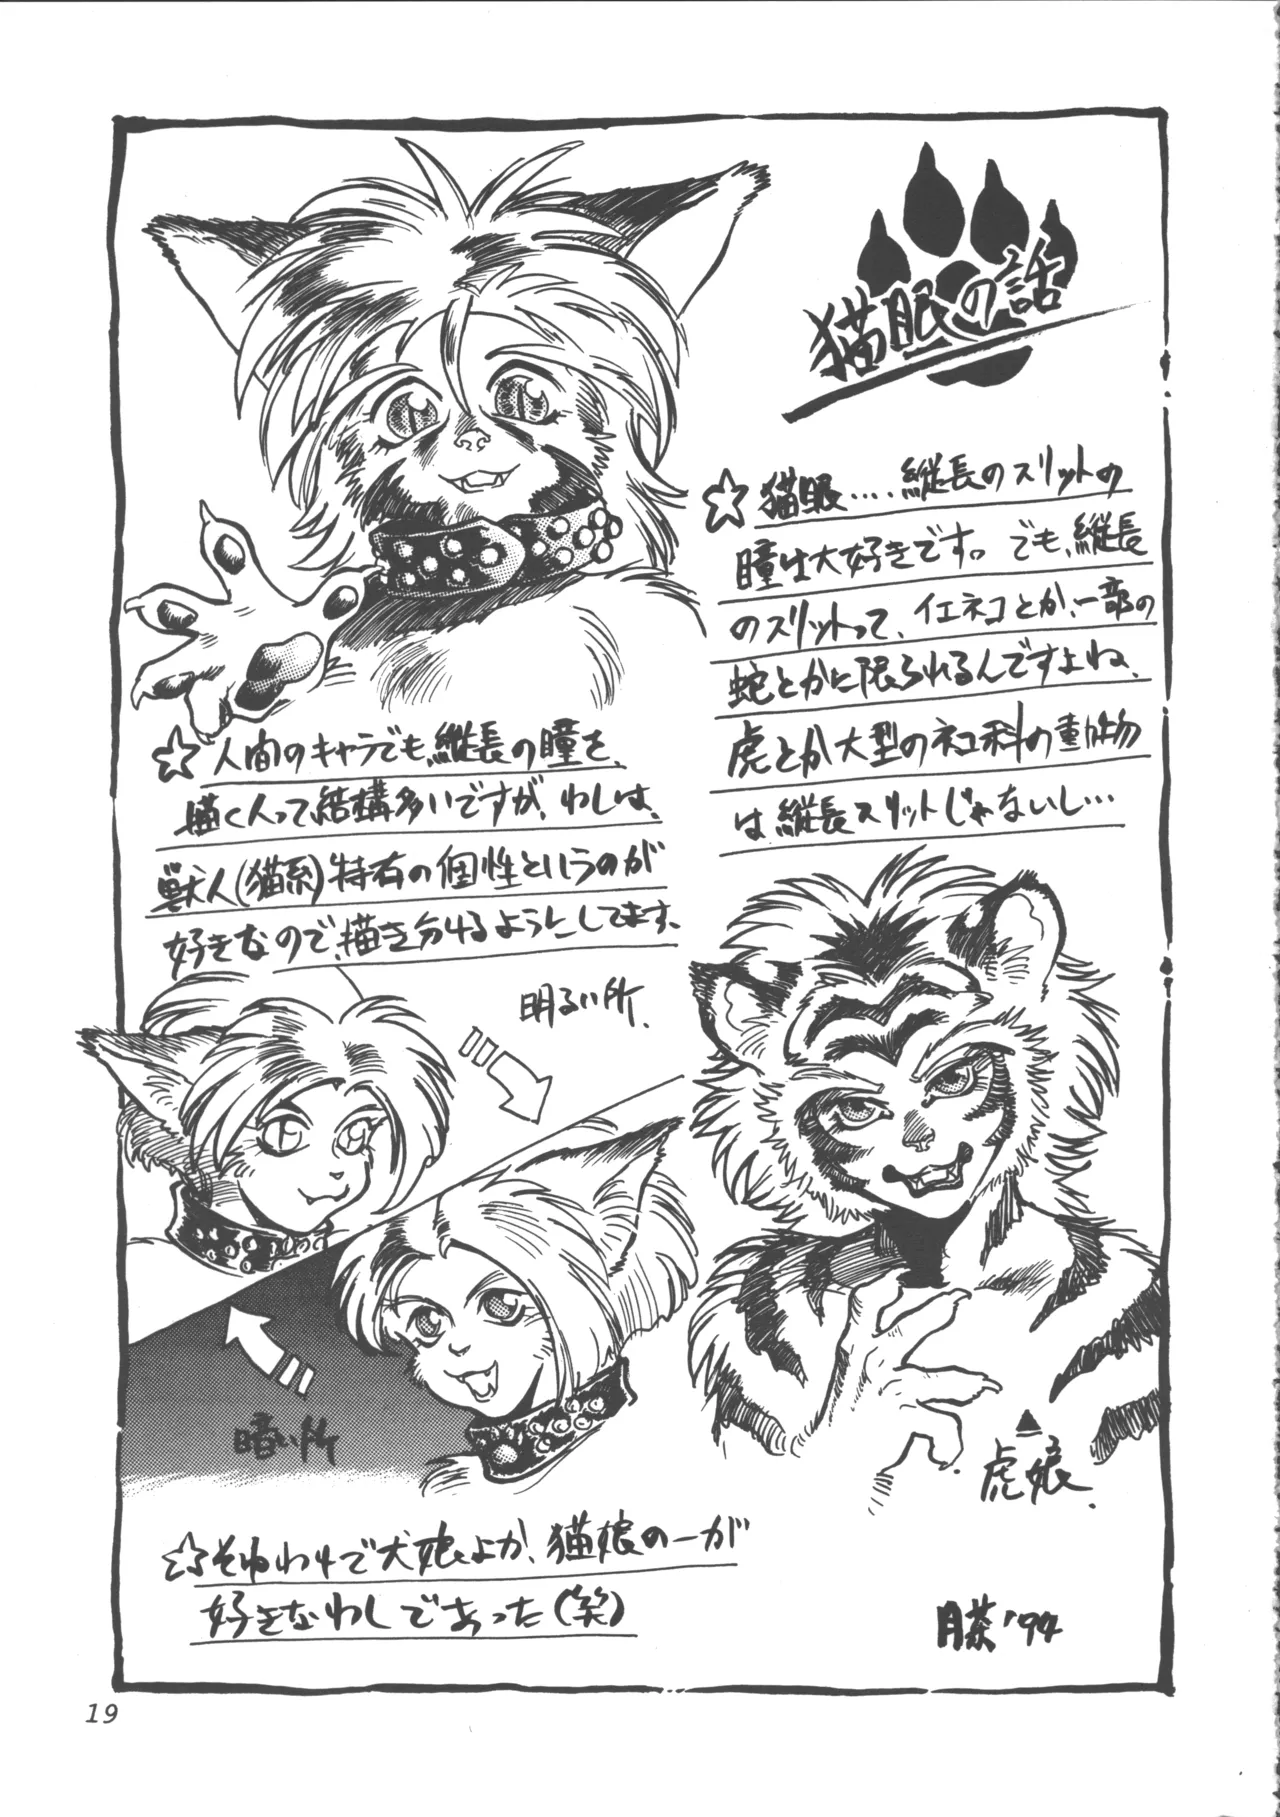 猫眼の話
☆猫眼....縦長のスリットの
瞳は大好きです。でも、縦長
のスリットって、イエネコとか、一部の
蛇とかに限られるんですよね、
虎とか大型のネコ科の動物
は縦長スリットじゃないし…
☆人間のキャラでも、縦長の瞳を、
描く人って、結構多いですが、わしは、
獣人(猫系)特有の個性というのが
好きなので、描き分けるようにしてます。
明るい所.
暗い所
▲
虎娘.
☆そぉゆわけで犬娘よか、猫娘の一が
好きなわしであった(笑)
月茶'94
19